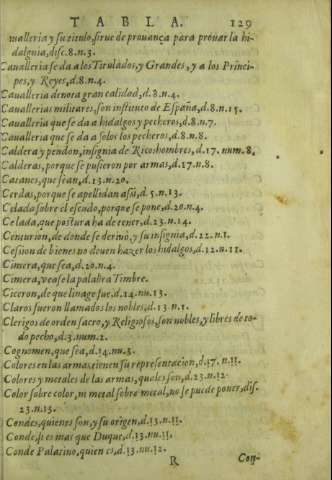 TABLA. 129
ualleria y su titulo, sirue de prouança para prouar la hi-
dalguia, disc. 8. n. 3.
Caualleria se da a los Titulados, y Grandes, y a los Princi-
pes, y Reyes, d. 8. n. 4.
Caualleria denota gran calidad, d. 8. n. 4.
Cauallerias militares, son instituto de España, d. 8. n. 15.
Caualleria que se da a hidalgos y pecheros, d. 8. n. 7.
Caualleria que se da a solos los pecheros, d. 8. n. 8.
Caldera y pendon, insignia de Ricoshombres, d. 17. num. 8.
Calderas, porque se pusieron por armas, d. 17. n. 8.
Casanes, que sean, d. 13. n. 20.
Cerdas, porque se apellidan assi, d. 5. n. 13.
Celada sobre el escudo, porque se pone, d. 20. n. 4.
Celada, que postura ha de tener, d. 23. n. 14.
Centurion, de donde se deriuò, y su insignia, d. 22. n. 1.
Cession de bienes no deuen hazer los hidalgos, d. 12. n. 11.
Cimera, que sea, d. 20. n. 4.
Cimera, vease la palabra Timbre.
Ciceron, de que linage fue, d. 14. nu. 13.
Claros fueron llamados los nobles, d. 13. n. 1.
Clerigos de orden sacro, y Religiosos, son nobles, y libres de to-
do pecho, d. 3. num. 2.
Cognomen, que sea, d. 14. nu. 3.
Colores en las armas, tienen su representacion, d. 17. n. 11.
Colores y metales de las armas, quales son, d. 23. n. 12.
Color sobre color, ni metal sobre metal, no se puede poner, dis.
23. n. 13.
Condes, quienes son, y su origen, d. 13. n. 11.
Conde, si es mas que Duque, d. 13. nu. 11.
Conde Palatino, quien es, d. 13. nu. 12.
R Con-